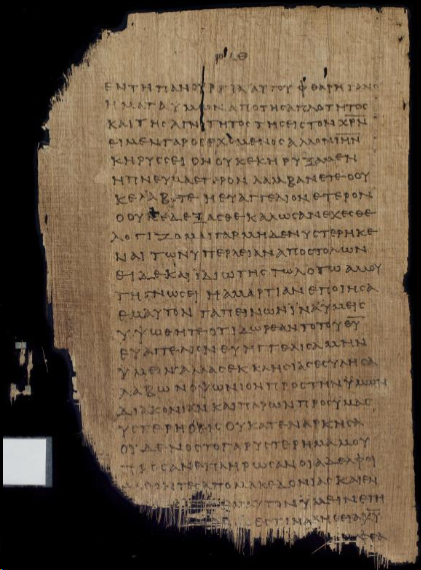 ΕΝΤΗΠΑΝΟΥΡΓΙΑΑΥΤΟΥΦΘΑΡΗΤΑΝΟ
ΗΜΑΤΑΥΜΩΝΑΠΟΤΗϹΑΠΛΟΤΗΤΟϹ
ΚΑΙΤΗϹΑΓΝΟΤΗΤΟϹΤΗϹΕΙϹΤΟΝΧΡΝ
ΕΙΜΕΝΓΑΡΟΕΡΧΟΜΕΝΟϹΑΛΛΟΝΙΗΝ
ΚΗΡΥϹϹΕΙΟΝΟΥΚΕΚΗΡΥΞΑΜΕΝ
ΗΠΝΕΥΜΑΕΤΕΡΟΝΛΑΜΒΑΝΕΤΕΟΟΥ
ΚΕΛΑΒΕΤΕΗΕΥΑΓΓΕΛΙΟΝΕΤΕΡΟΝ
ΟΟΥΚΕΔΕΞΑϹΘΕΚΑΛΩϹΑΝΕΧΕϹΘΕ
ΛΟΓΙΖΟΜΑΙΓΑΡΜΗΔΕΝΥϹΤΕΡΗΚΕ
ΝΑΙΤΩΝΥΠΕΡΛΕΙΑΝΑΠΟϹΤΟΛΩΝ
ΕΙΔΕΚΑΙΙΔΙΩΤΗϹΤΩΛΟΓΩΑΛΛΟΥ
ΤΗΓΝΩϹΕΙΗΑΜΑΡΤΙΑΝΕΠΟΙΗϹΑ
ΕΜΑΥΤΟΝΤΑΠΕΙΝΩΝΙΝΑΥΜΕΙϹ
ΥΨΩΘΗΤΕΟΤΙΔΩΡΕΑΝΤΟΤΟΥΘΥ
ΕΥΑΓΓΕΛΙΟΝΕΥΗΓΓΕΛΙϹΑΜΗΝ
ΥΜΕΙΝΑΛΛΑϹΕΚΚΛΗϹΙΑϹΕϹΥΛΗϹΑ
ΛΑΒΩΝΟΨΩΝΙΟΝΠΡΟϹΤΗΝΥΜΩΝ
ΔΙΑΚΟΝΙΑΝΚΑΙΠΑΡΩΝΠΡΟϹΥΜΑϹ
ΥϹΤΕΡΗΘΕΙϹΟΥΚΑΤΕΝΑΡΚΗϹΑ
ΟΥΔΕΝΟϹΤΟΓΑΡΥϹΤΕΡΗΜΑΜΟΥ
ΠΡΟϹΑΝΕΠΛΗΡΩϹΑΝΟΙΑΔΕΛΦΟΙ
ΕΛΘΟΝΤΕϹΑΠΟΜΑΚΕΔΟΝΙΑϹΚΑΙΕΝ
ΕΜΑΥΤΟΝΥΜΕΙΝΕΤΗ
ΕϹΤΙΝΑΛΗΘΕΙΑΧΥ